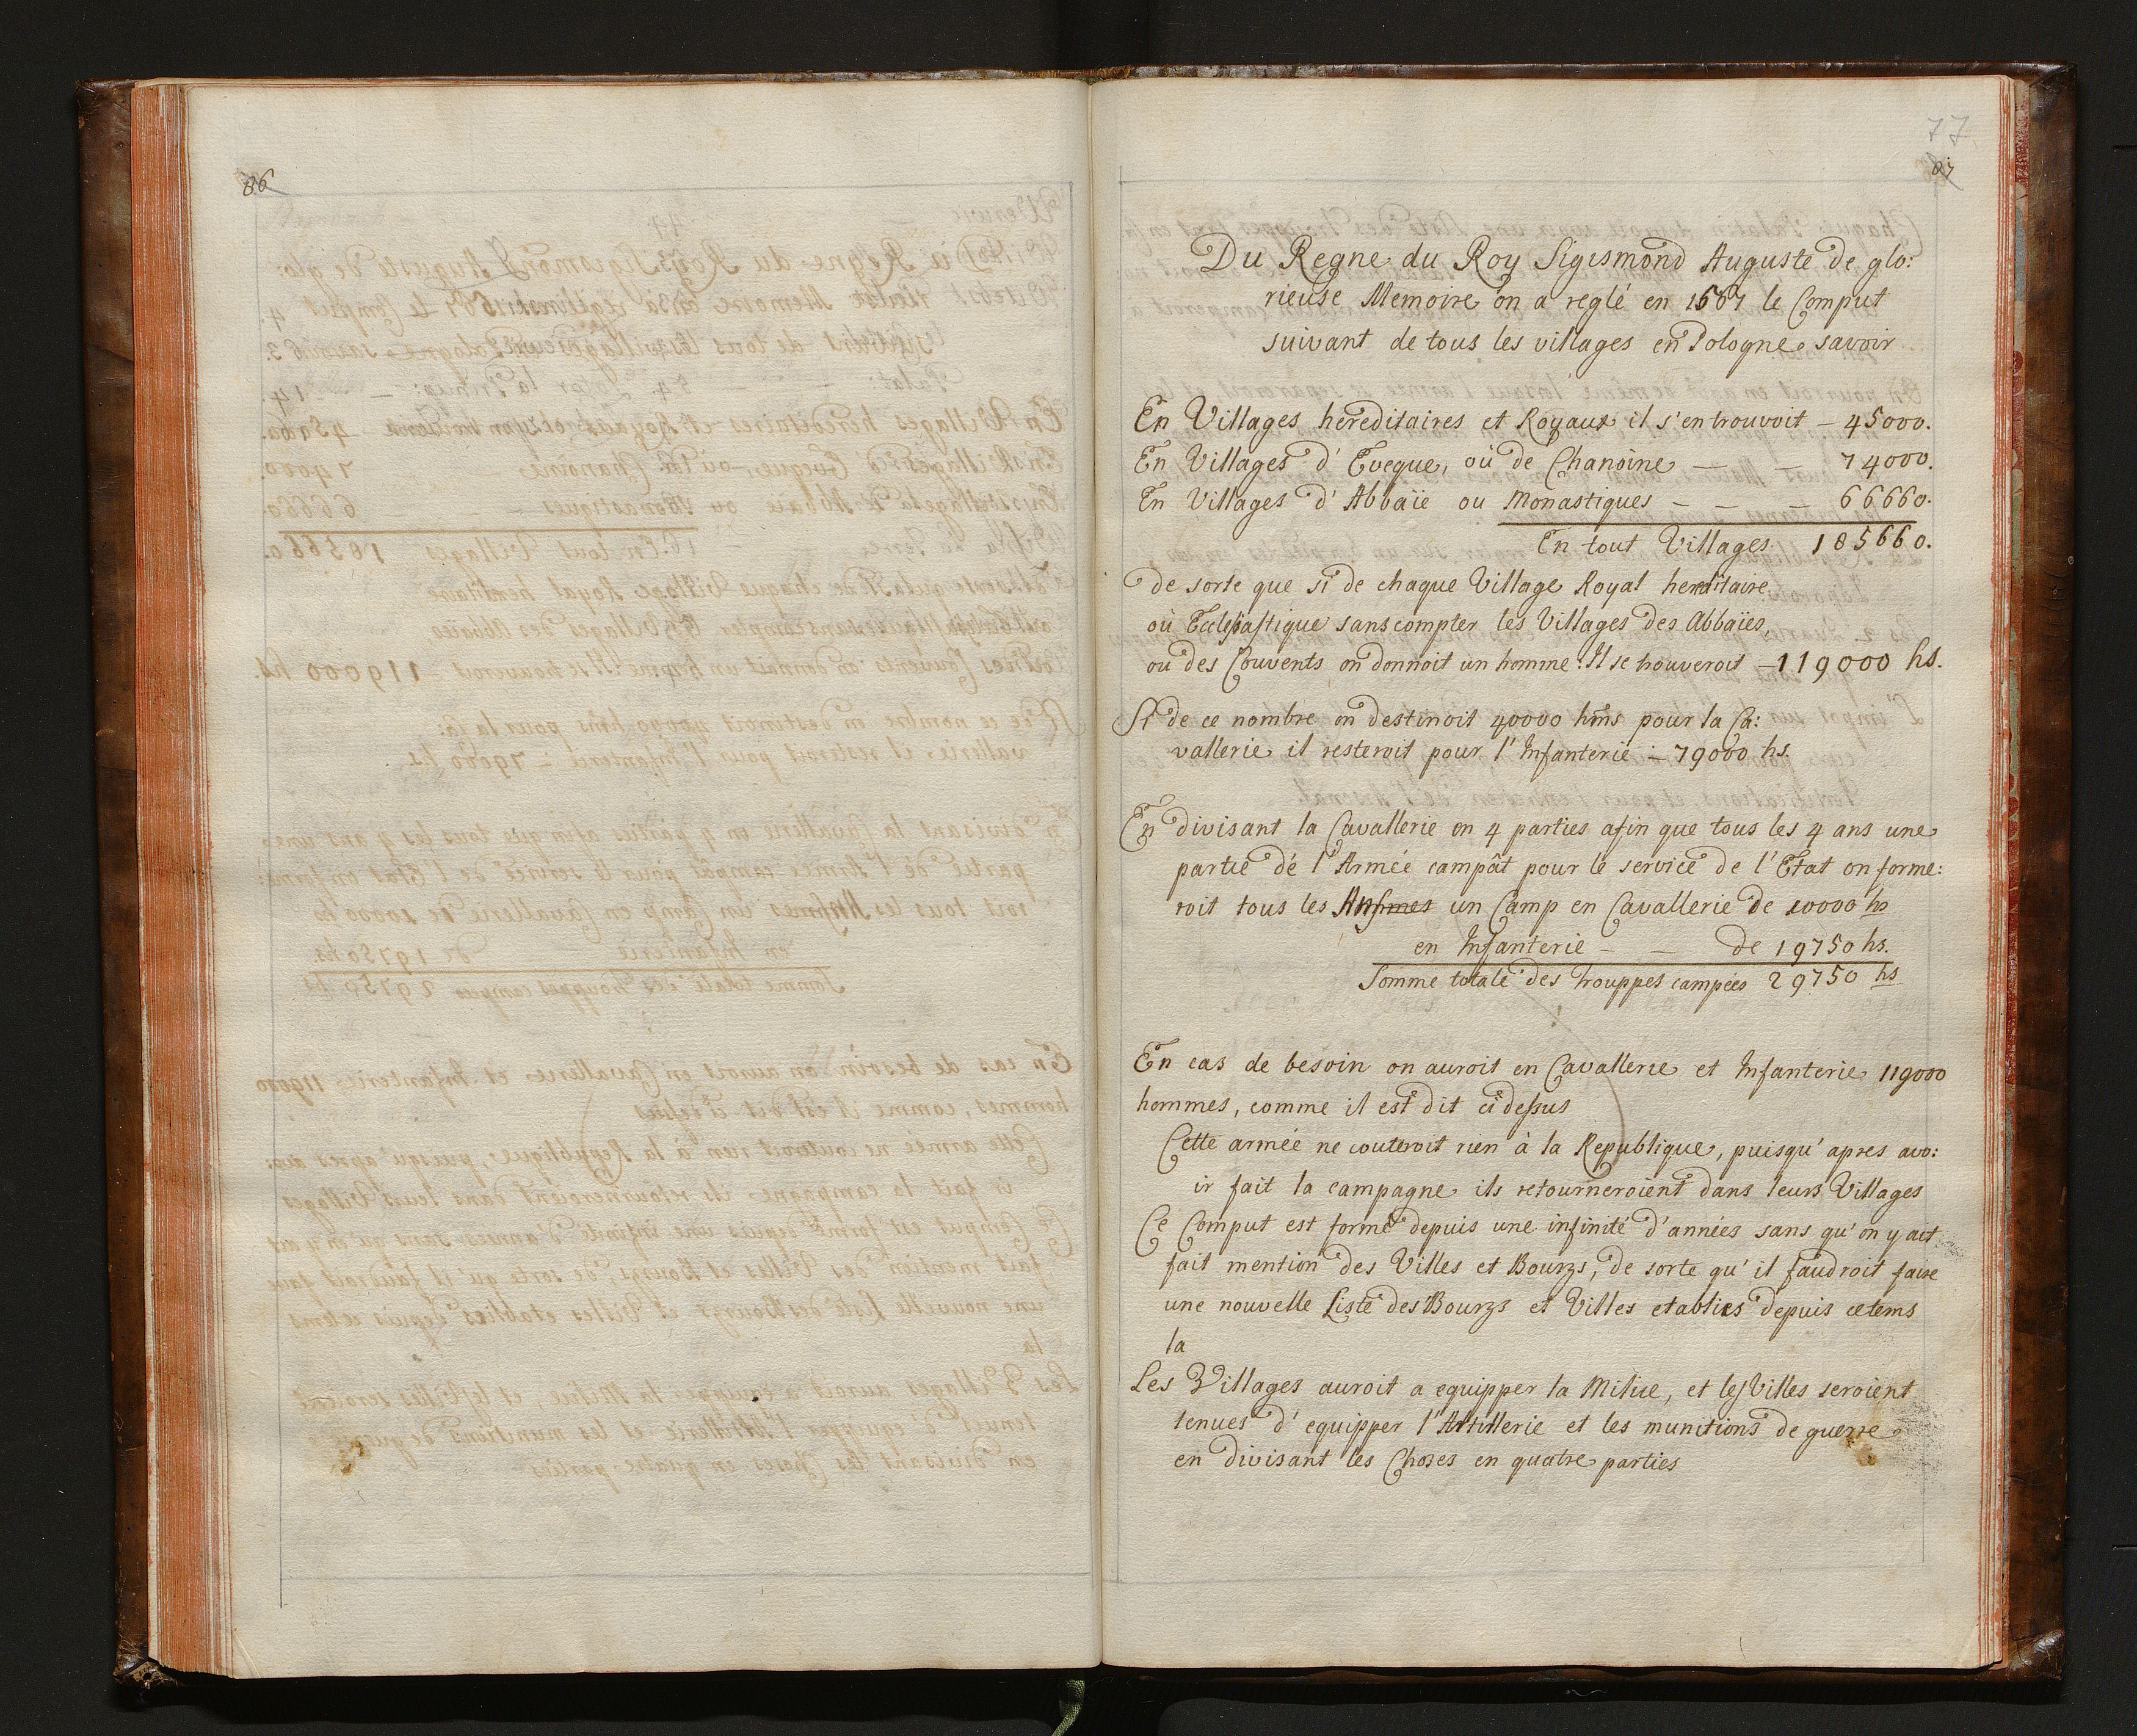 86
77
87
Du Regne du Roy Sigismond Auguste de glo:
rieuse Memoire on a reglé en 1567 le Comput
suivant de tous les villages en Pologne savoir
En Villages hereditaires et Royaux il s'en trouvoit – 45000.
En Villages d'Eveque, où de Chanoine — — 74000.
En Villages d'Abbaïe ou Monastiques – — — 66660.
En tout Villages 185660.
de sorte que si de chaque Village Royal hereditaire,
où Eclesiastique sans compter les Villages des Abbaïes,
ou des Couvents on donnoit un homme. Il se trouveroit – 119000 hs.
Si de ce nombre on destinoit 40000 hms pour la Ca:
vallerie il resteroit pour l'Infanterie – 79000 hs.
En divisant la Cavallerie en 4 parties afin que tous les 4 ans une
partie de l'Armée campât pour le service de l'Etat on forme:
roit tous les Ans un Camp en Cavallerie de 10000 hs
en Infanterie – — de 19750 hs.
Somme totale des trouppes campées 29750 hs
En cas de besoin on auroit en Cavallerie et Infanterie 119000
hommes, comme il est dit ci dessus
Cette armée ne couteroit rien à la Republique, puisqu'apres avo:
ir fait la campagne ils retourneroient dans leurs Villages
Ce Comput est formé depuis une infinité d'années sans qu'on y ait
fait mention des Villes et Bourgs, de sorte qu'il faudroit faire
une nouvelle Liste des Bourgs et Villes etablies depuis ce tems
la
Les Villages auroit a equipper la Milice, et les Villes seroient
tenues d'equipper l'Artillerie et les munitions de guerre
en divisant les Choses en quatre parties